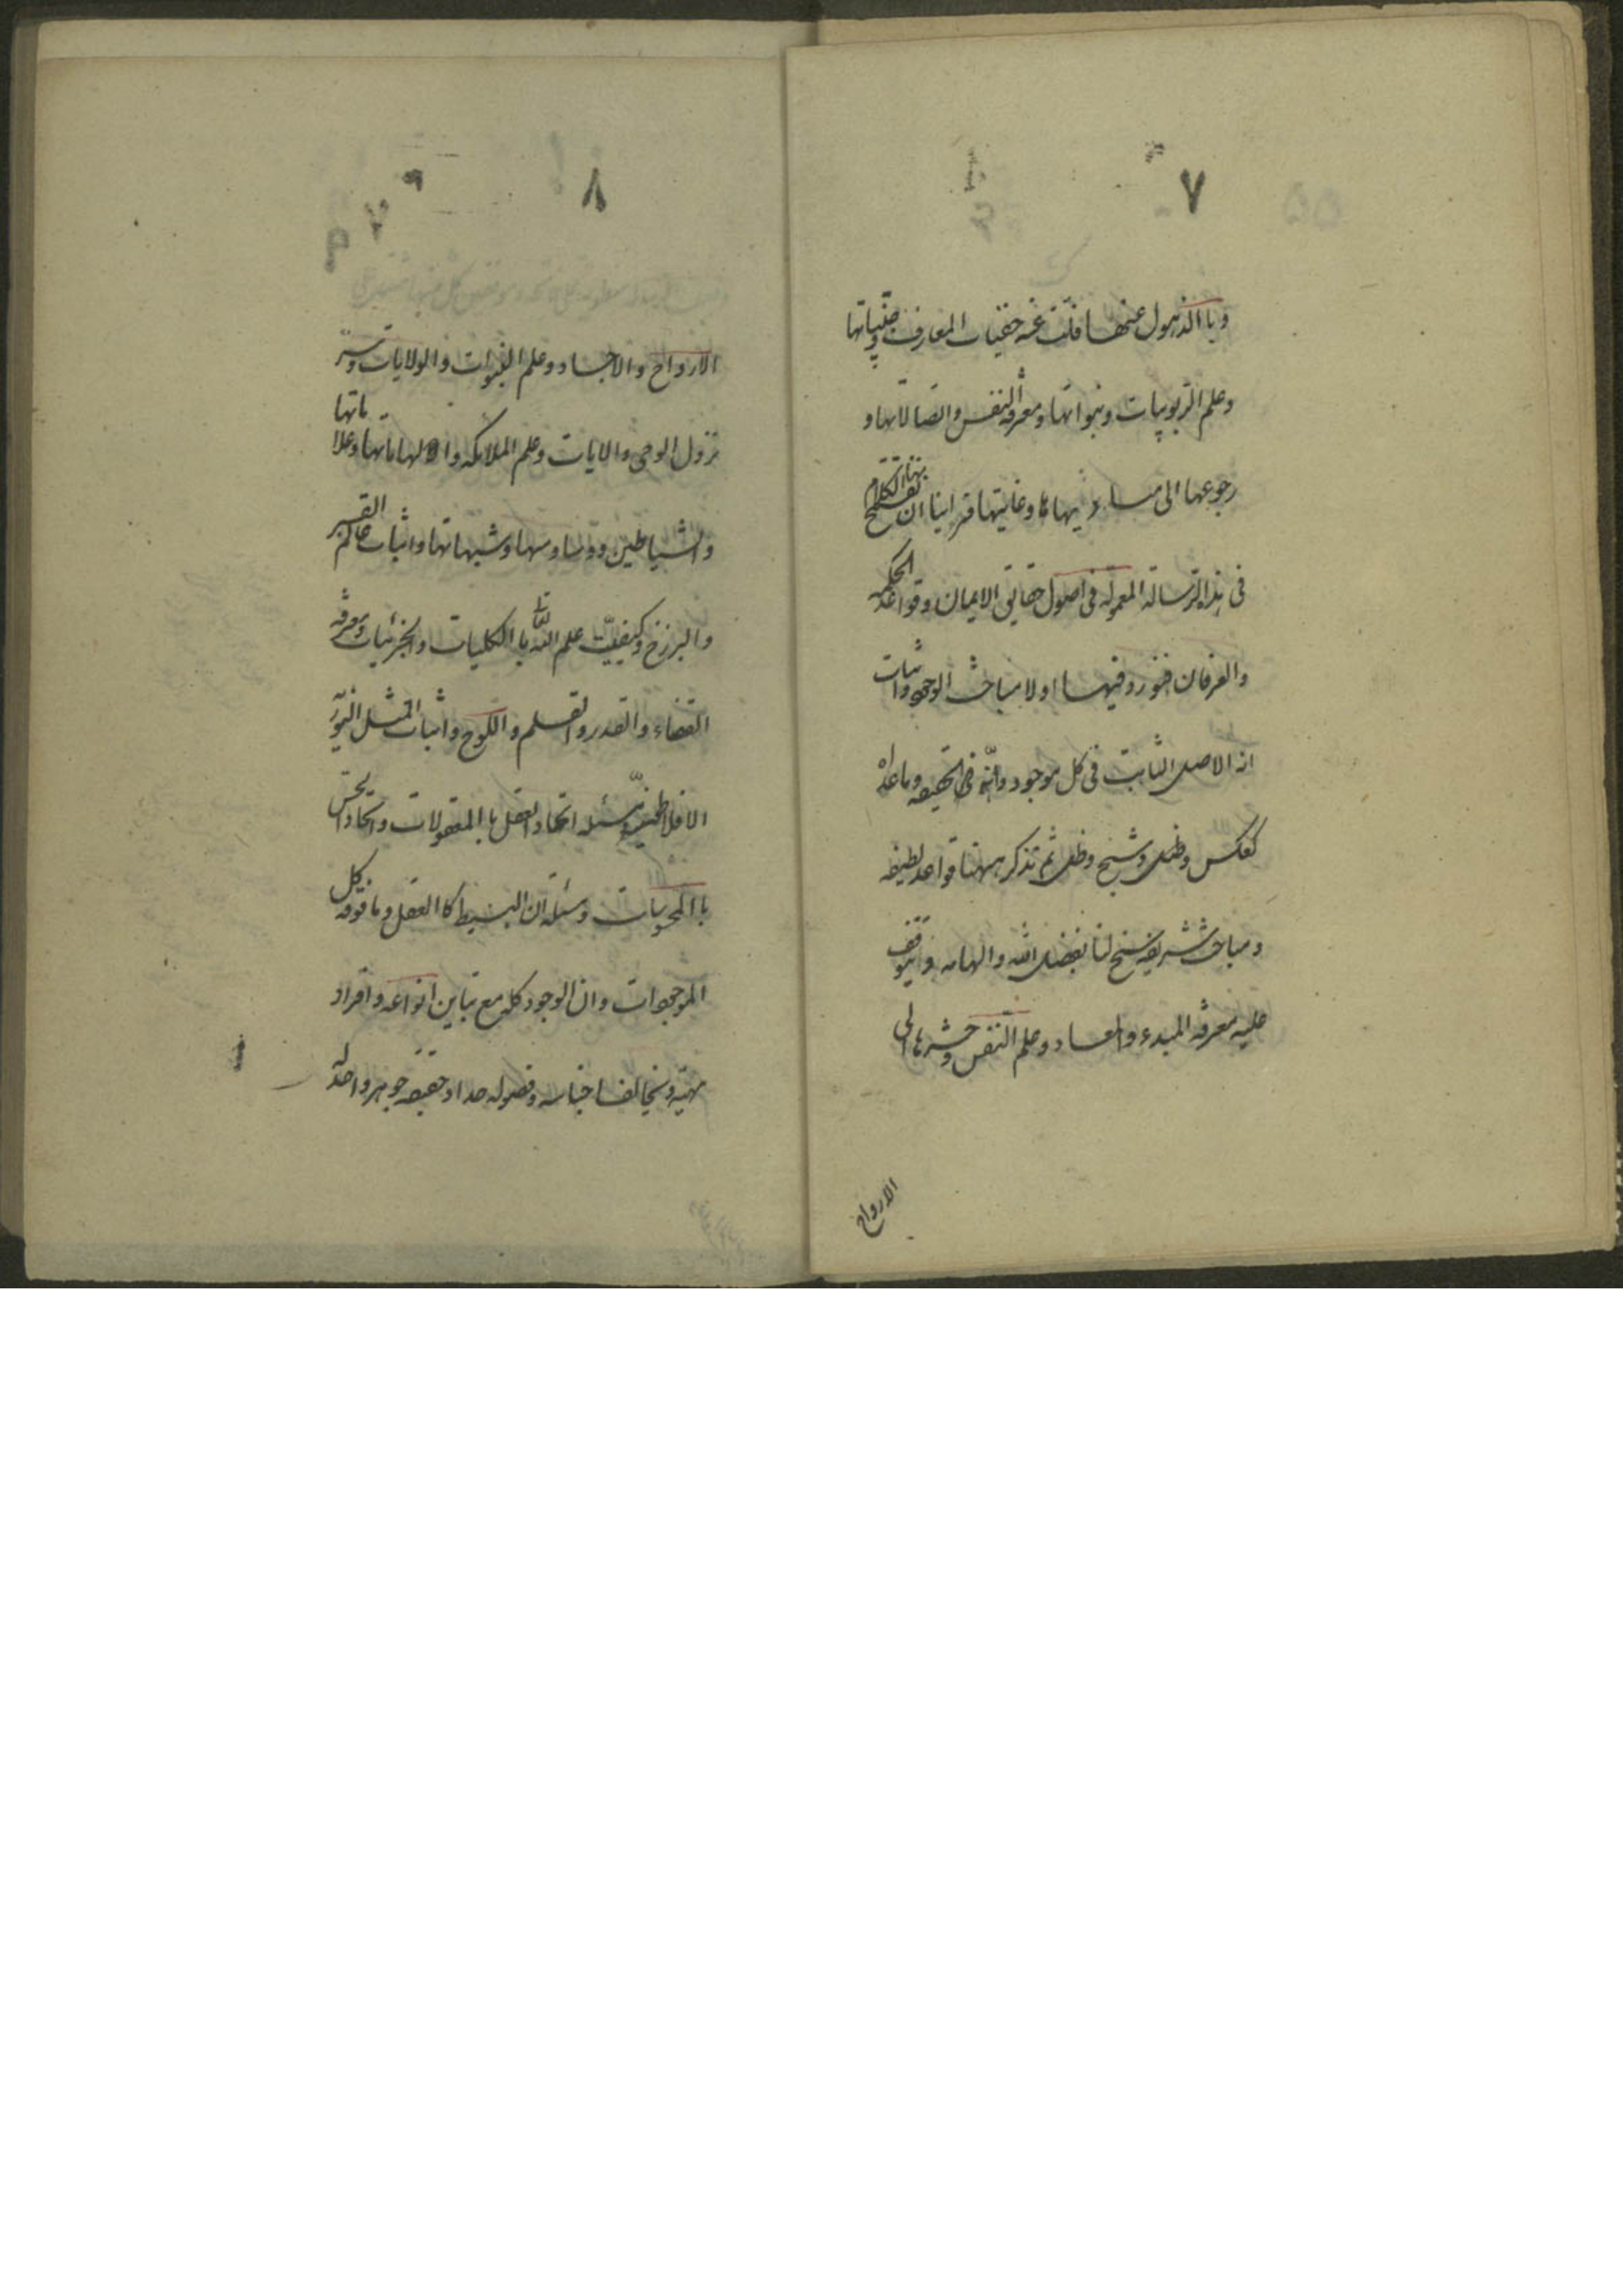 ٧
وبا الذهول عنها فلتت عنه خفيات المعارف وخبياتها
وعلم الربوبيات ونبواتها ومعرفة النفس واتصالاتها و
رجوعها الى مباديها وغايتها فراينا ان نفتتح بها الكلام
فى هذا الرسالة المعمولة فى اصول حقايق الايمان وقواعد الحكمه
والعرفان فنورد فيها اولا مباحث الوجود واثبات
انه الاصل الثابت فى كل موجود وانّه فى الحقيقه وما عداه
كعكس وظل وشبح وظل ثم نذكر ههنا قواعد لطيفه
ومباحث شريفه سنح لنا بفضل الله والهامه ويتوقف
عليه معرفة المبدء والمعاد وعلم النفس وحشرها الى
الارواح
٨
الارواح والاجساد وعلم النبوات والولايات وسرّ
نزول الوحى والايات وعلم الملائكه والهاماتها وعلاماتها
والشياطين ووساوسها وشبهاتها واثبات عالم القبر
والبرزخ وكيفيّت علم الله تعالى با الكليات والجزئيات ومعرفة
القضاء والقدر والقلم واللوح واثبات المثل النوريّه
الافلاطنيّه ومسئله اتحاد العقل با المعقولات واتحاد الحسّ
با المحسوسات ومسئلة ان البسيط كا العقل وما فوقه كل
الموجودات وان الوجود كله مع تباين انواعه وافراد
مهيّة وتخالف اجناسه وفصوله حدا وحقيقه جوهر واحد له